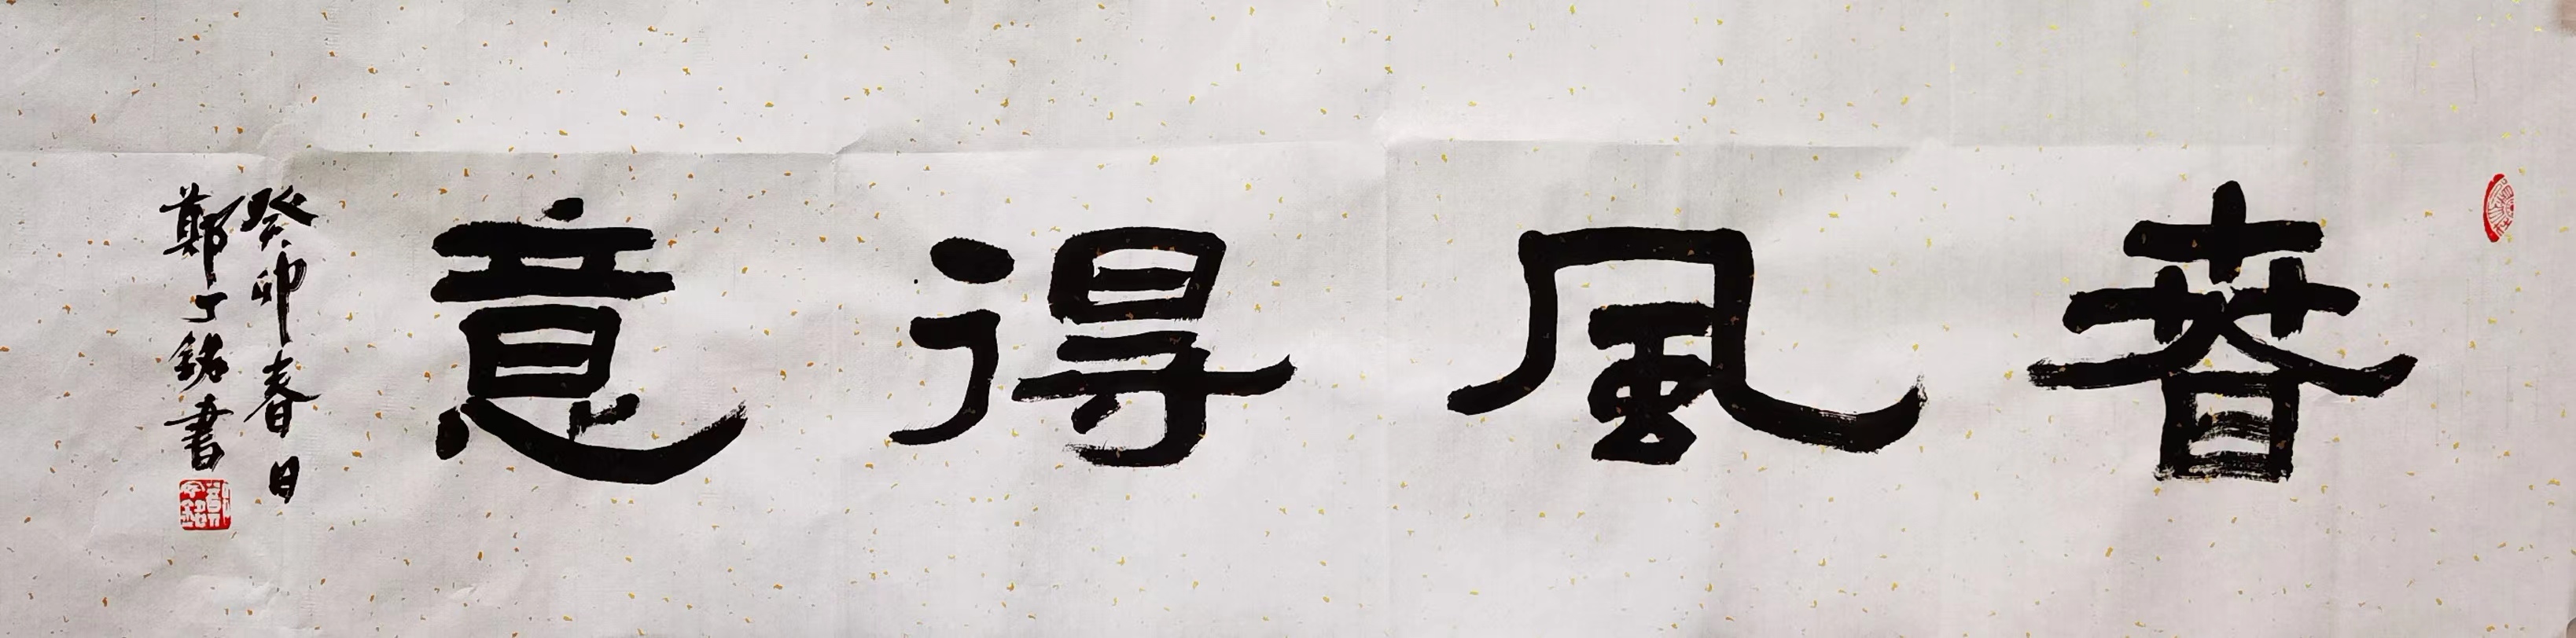 春風得意
癸卯春日
鄭丁銘書